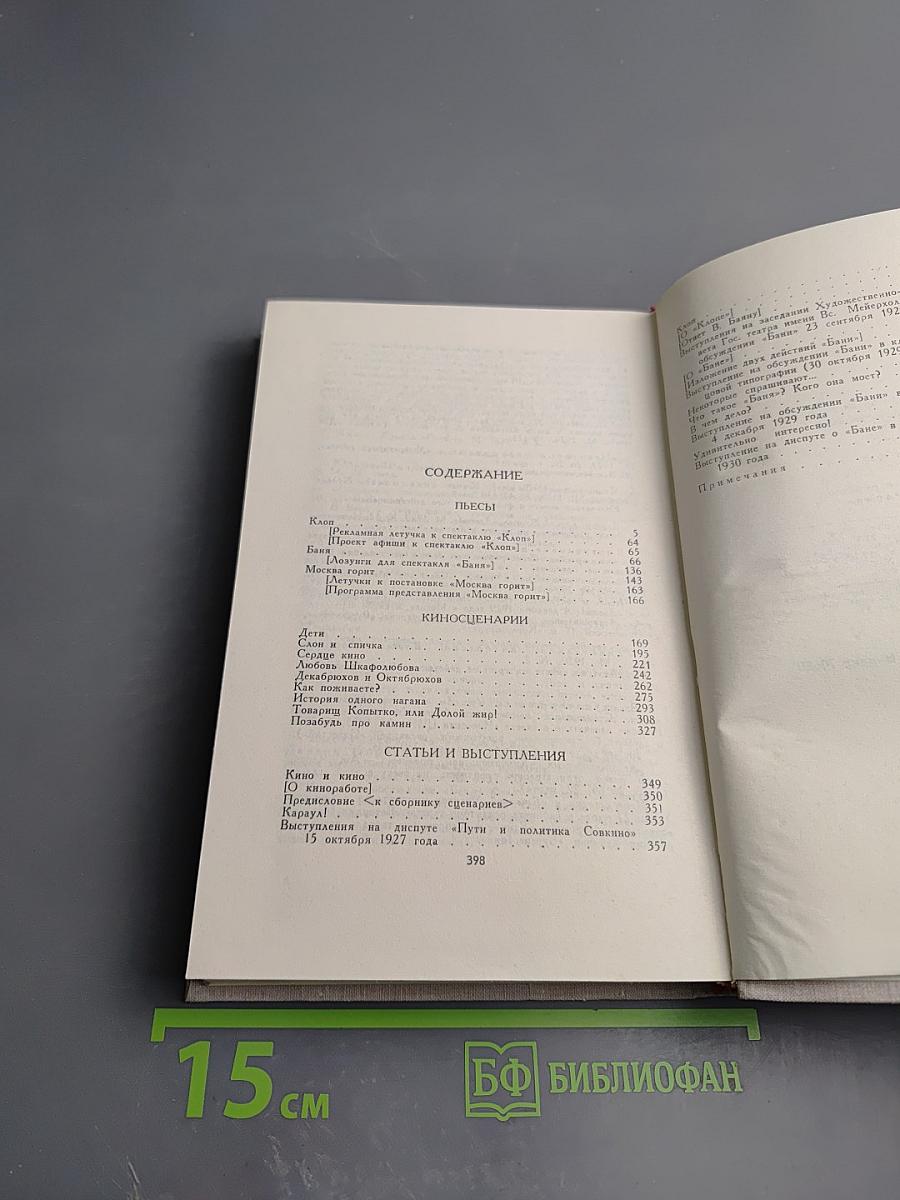 СОДЕРЖАНИЕ
ПЬЕСЫ
Клоп . . . . . . . . . . 5
[Рекламная летучка к спектаклю «Клоп»] . . . . . . 64
[Проект афиши к спектаклю «Клоп»] . . . . . . 65
Баня . . . . . . . . . . 66
[Лозунги для спектакля «Баня»] . . . . . . 136
Москва горит . . . . . . . . . . 143
[Летучки к постановке «Москва горит»] . . . . . . 163
[Программа представления «Москва горит»] . . . . . . 166
КИНОСЦЕНАРИИ
Дети . . . . . . . . . . 169
Слон и спичка . . . . . . . . . . 195
Сердце кино . . . . . . . . . . 221
Любовь Шкафолюбова . . . . . . . . . . 242
Декабрюхов и Октябрюхов . . . . . . . . . . 262
Как поживаете? . . . . . . . . . . 275
История одного нагана . . . . . . . . . . 293
Товарищ Копытко, или Долой жир! . . . . . . . . . . 308
Позабудь про камин . . . . . . . . . . 327
СТАТЬИ И ВЫСТУПЛЕНИЯ
Кино и кино . . . . . . . . . . 349
[О киноработе] . . . . . . . . . . 350
Предисловие <к сборнику сценариев> . . . . . . 351
Караул! . . . . . . . . . . 353
Выступления на диспуте «Пути и политика Совкино»
15 октября 1927 года . . . . . . . . . . 357
398
Клоп
[О «Клопе»]
[Ответ В. Баяну]
Выступления на заседании Художественно-
вета Гос. театра имени Вс. Мейерхол
обсуждении «Бани» 23 сентября 192
[О «Бане»]
[Изложение двух действий «Бани»]
Выступление на обсуждении «Бани» в кл
цовой типографии (30 октября 1929
Некоторые спрашивают...
Что такое «Баня»? Кого она моет?
В чем дело?
Выступление на обсуждении «Бани» в
4 декабря 1929 года
Удивительно интересно!
Выступление на диспуте о «Бане» в
1930 года
Примечания
15 см
БФ БИБЛИОФАН